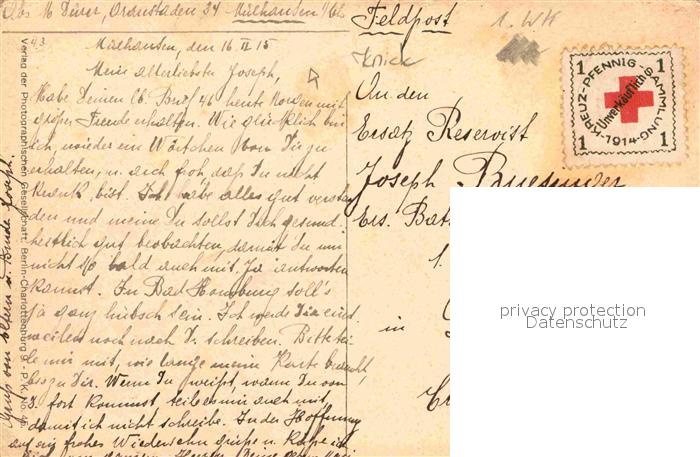 Abs. M Dürr, Ordnstaden 34 Mülhausen i/Els
Mülhausen, den 16 II 15
Mein allerliebster Joseph,
Habe Deinen lb. Brief heute Morgen mit
großer Freude erhalten. Wie glücklich bin
ich, wieder ein Wörtchen von Dir zu
erhalten, u. auch froh daß Du nicht
krank bist. Ich habe alles gut verstan
den und meine Du sollst Dich gesund
heitlich gut beobachten, damit Du mir
nicht so bald auch mit Ja antworten
kannst. In Bad Homburg soll's
ja ganz hübsch sein. Ich werde Dir einst
weilen noch nach D. schreiben. Bitte tei
le mir mit, wie lange meine Karte braucht,
bis zu Dir. Wenn Du weißt, wann Du von
D. fort kommst teile es mir auch mit,
damit ich nicht schreibe. In der Hoffnung
auf ein frohes Wiedersehn grüße u. küße ich
Dich von ganzem Herzen
Gruß von Eltern u. Bruder Joseph.
Verlag der Photographischen Gesellschaft, Berlin-Charlottenburg 9 - P. K. No.
43
Feldpost
1. WK
Knick
An den
Ersatz Reservist
Joseph
Ers. Bat
1.
in
KREUZ-PFENNIG-SAMMLUNG
1914
Unverkäuflich
1 1
1 1
privacy protection
Datenschutz